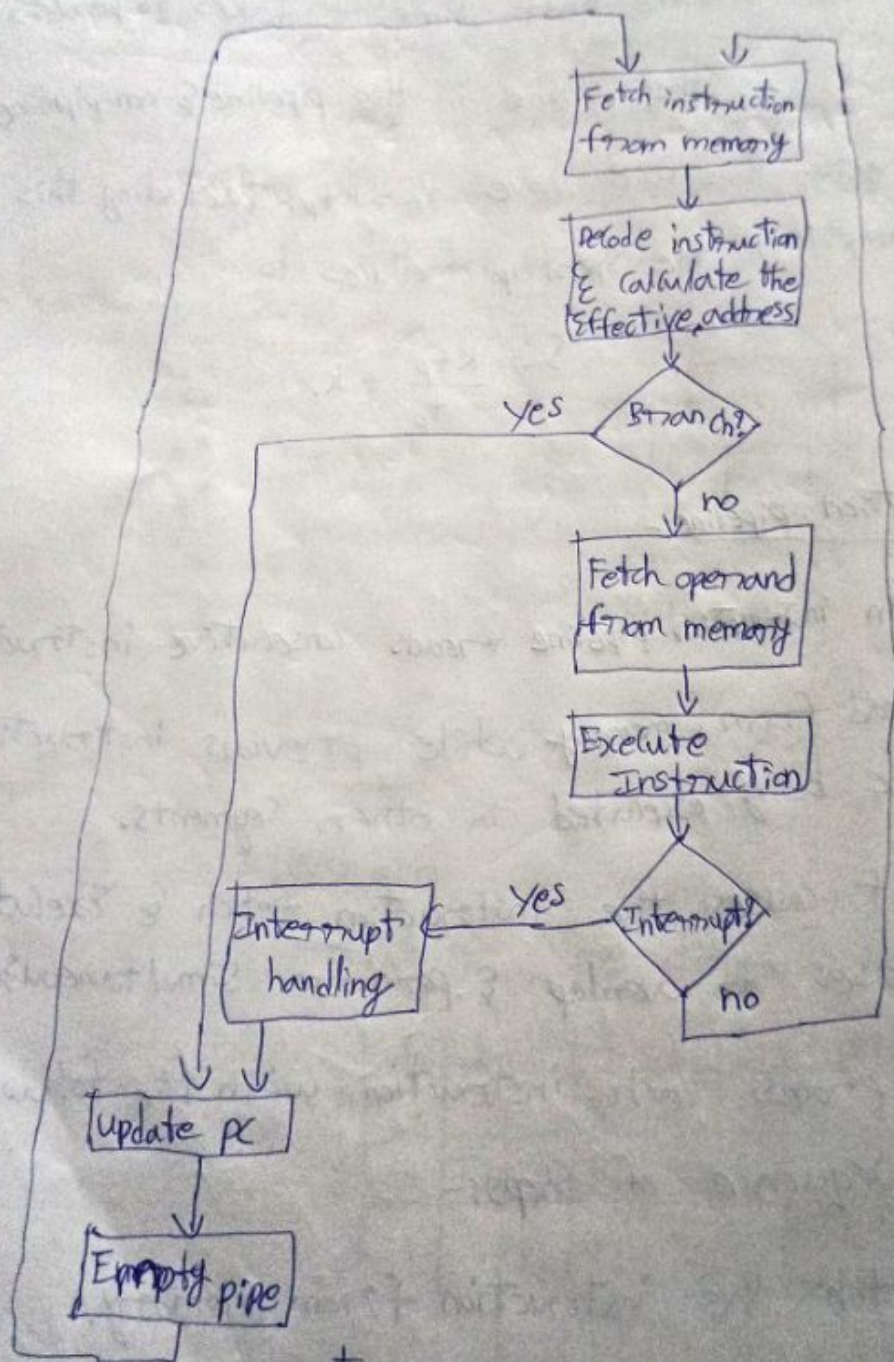 Fetch instruction
from memory
Decode instruction
& calculate the
Effective address
Branch?
yes
no
Fetch operand
from memory
Execute
Instruction
Interrupt?
yes
no
Interrupt
handling
update pc
Empty pipe